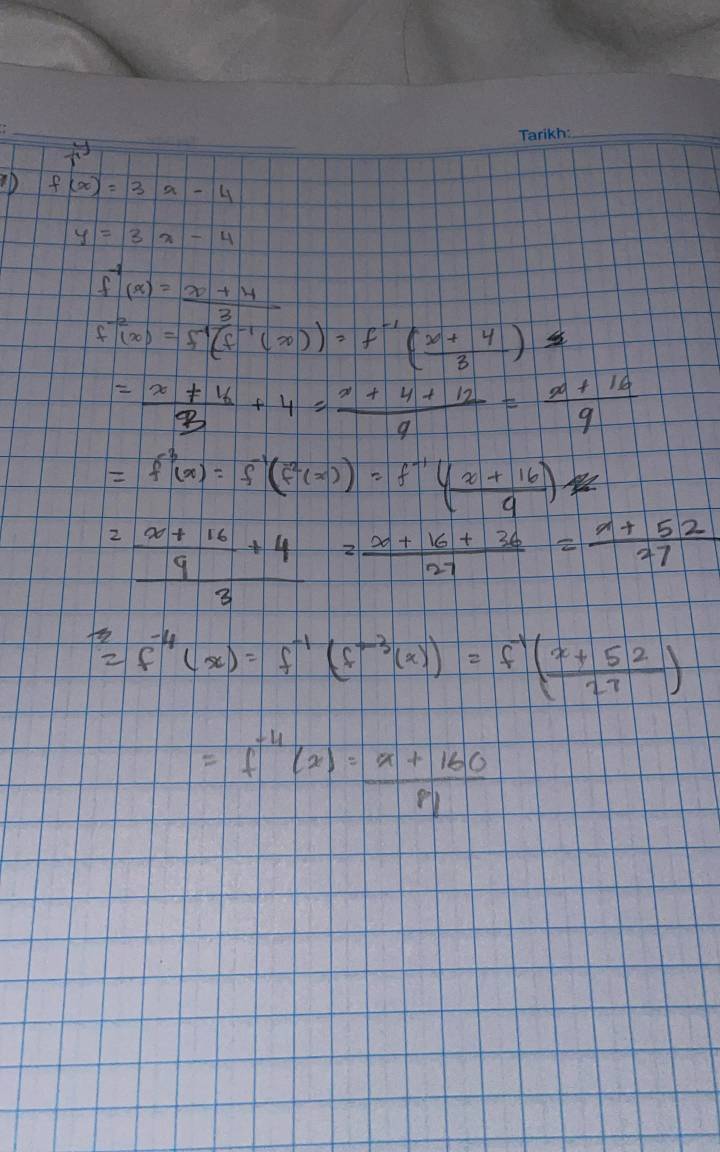 Tarikh:
f(x) = 3x - 4
y = 3x - 4
f⁻¹(x) = (x + 4)/3
f⁻²(x) = f⁻¹(f⁻¹(x)) = f⁻¹((x + 4)/3)
= (x + 16)/3 + 4 = (x + 4 + 12)/9 = (x + 16)/9
= f⁻³(x) = f⁻¹(f⁻²(x)) = f⁻¹((x + 16)/9)
= ((x + 16)/9 + 4)/3 = (x + 16 + 36)/27 = (x + 52)/27
= f⁻⁴(x) = f⁻¹(f⁻³(x)) = f⁻¹((x + 52)/27)
= f⁻⁴(x) = (x + 160)/81